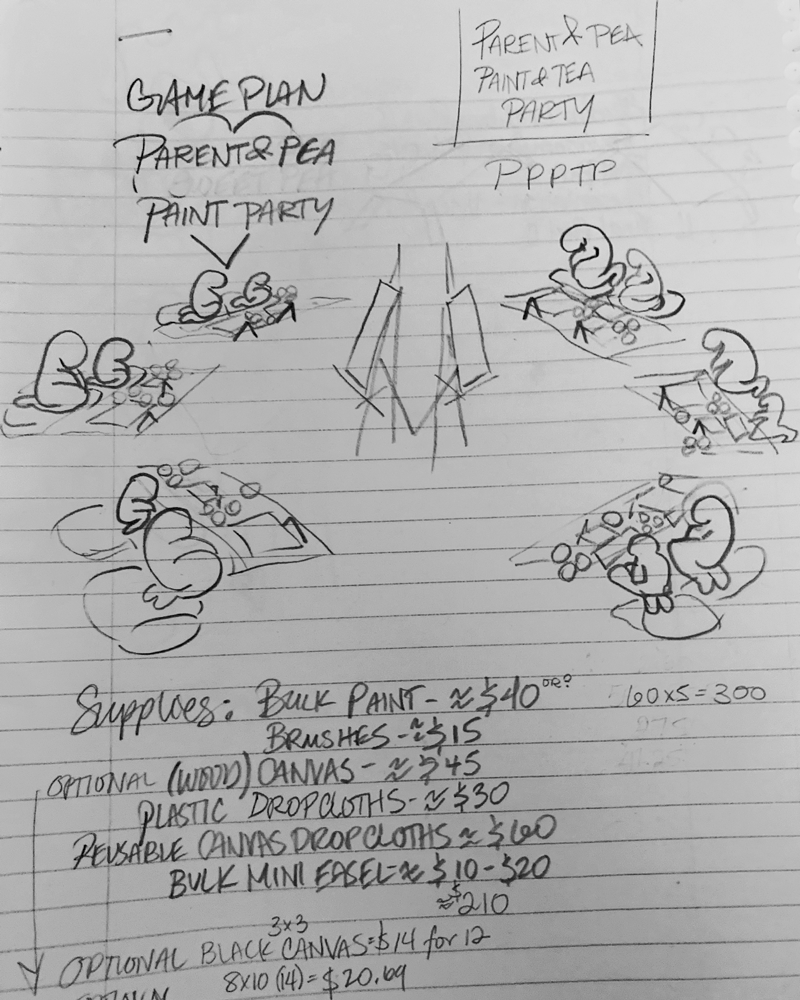 GAME PLAN
PARENT & PEA
PAINT PARTY
PARENT & PEA
PAINT & TEA
PARTY
PPPTP
Supplies: BULK PAINT - ≈ $40 OR? 60x5=300
BRUSHES - ≈ $15
OPTIONAL (WOOD) CANVAS - ≈ $45
PLASTIC DROPCLOTHS - ≈ $30
REUSABLE CANVAS DROPCLOTHS ≈ $60
BULK MINI EASEL - ≈ $10 - $20
≈ $210
3x3
OPTIONAL BLACK CANVAS = $14 for 12
8x10 (14) = $20.69